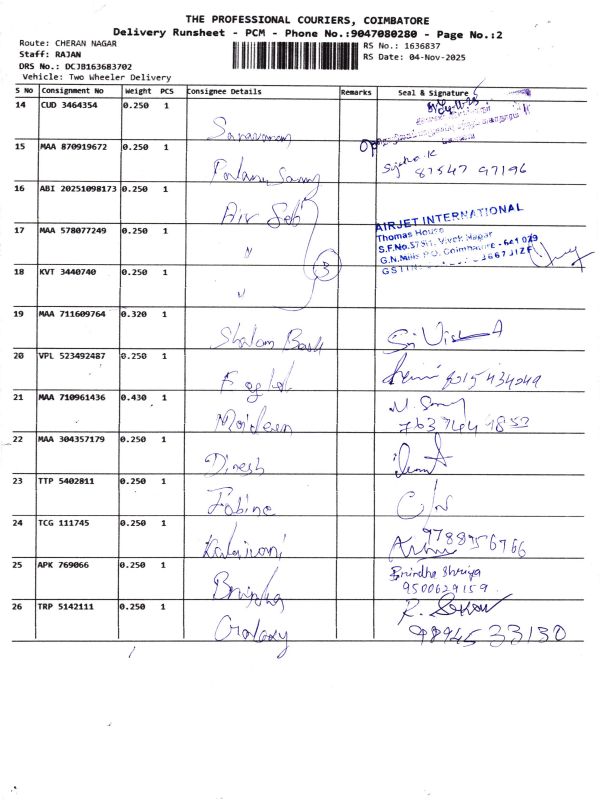 THE PROFESSIONAL COURIERS, COIMBATORE
Delivery Runsheet - PCM - Phone No.:9047080280 - Page No.:2
Route: CHERAN NAGAR
RS No.: 1636837
Staff: RAJAN
RS Date: 04-Nov-2025
DRS No.: DCJB163683702
Vehicle: Two Wheeler Delivery
S No Consignment No Weight PCS Consignee Details Remarks Seal & Signature
14 CUD 3464354 0.250 1
Saravanan
15 MAA 870919672 0.250 1
Sujitha K
87547 97196
16 ABI 20251098173 0.250 1
Air
17 MAA 578077249 0.250 1
"
AIRJET INTERNATIONAL
Thomas House
S.F.No.57/9/1, Vivek Nagar
G.N.Mills P.O, Coimbatore - 641 029
3
18 KVT 3440740 0.250 1
"
19 MAA 711609764 0.320 1
Shalom
20 VPL 523492487 0.250 1
8015434049
21 MAA 710961436 0.430 1
Moideen
22 MAA 304357179 0.250 1
Dinesh
23 TTP 5402811 0.250 1
Fabina
24 TCG 111745 0.250 1
9788956766
25 APK 769066 0.250 1
Brindha Shriya
9500629159
Brindha
26 TRP 5142111 0.250 1
Galaxy
98945 33130